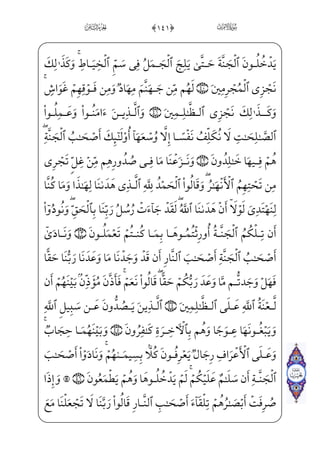 الجزء الثامن ﴿١٤١﴾ سورة الأعراف
يَدۡخُلُونَ ٱلۡجَنَّةَ حَتَّىٰ يَلِجَ ٱلۡجَمَلُ فِي سَمِّ ٱلۡخِيَاطِۚ وَكَذَٰلِكَ
نَجۡزِي ٱلۡمُجۡرِمِينَ ٤٠ لَهُم مِّن جَهَنَّمَ مِهَادٞ وَمِن فَوۡقِهِمۡ غَوَاشٖۚ
وَكَذَٰلِكَ نَجۡزِي ٱلظَّٰلِمِينَ ٤١ وَٱلَّذِينَ ءَامَنُواْ وَعَمِلُواْ
ٱلصَّٰلِحَٰتِ لَا نُكَلِّفُ نَفۡسًا إِلَّا وُسۡعَهَآ أُوْلَٰٓئِكَ أَصۡحَٰبُ ٱلۡجَنَّةِۖ
هُمۡ فِيهَا خَٰلِدُونَ ٤٢ وَنَزَعۡنَا مَا فِي صُدُورِهِم مِّنۡ غِلّٖ تَجۡرِي
مِن تَحۡتِهِمُ ٱلۡأَنۡهَٰرُۖ وَقَالُواْ ٱلۡحَمۡدُ لِلَّهِ ٱلَّذِي هَدَىٰنَا لِهَٰذَا وَمَا كُنَّا
لِنَهۡتَدِيَ لَوۡلَآ أَنۡ هَدَىٰنَا ٱللَّهُۖ لَقَدۡ جَآءَتۡ رُسُلُ رَبِّنَا بِٱلۡحَقِّۖ وَنُودُوٓاْ
أَن تِلۡكُمُ ٱلۡجَنَّةُ أُورِثۡتُمُوهَا بِمَا كُنتُمۡ تَعۡمَلُونَ ٤٣ وَنَادَىٰٓ
أَصۡحَٰبُ ٱلۡجَنَّةِ أَصۡحَٰبَ ٱلنَّارِ أَن قَدۡ وَجَدۡنَا مَا وَعَدَنَا رَبُّنَا حَقّٗا
فَهَلۡ وَجَدتُّم مَّا وَعَدَ رَبُّكُمۡ حَقّٗاۖ قَالُواْ نَعَمۡۚ فَأَذَّنَ مُؤَذِّنُۢ بَيۡنَهُمۡ أَن
لَّعۡنَةُ ٱللَّهِ عَلَى ٱلظَّٰلِمِينَ ٤٤ ٱلَّذِينَ يَصُدُّونَ عَن سَبِيلِ ٱللَّهِ
وَيَبۡغُونَهَا عِوَجٗا وَهُم بِٱلۡأٓخِرَةِ كَٰفِرُونَ ٤٥ وَبَيۡنَهُمَا حِجَابٞۚ
وَعَلَى ٱلۡأَعۡرَافِ رِجَالٞ يَعۡرِفُونَ كُلَّۢا بِسِيمَىٰهُمۡۚ وَنَادَوۡاْ أَصۡحَٰبَ
ٱلۡجَنَّةِ أَن سَلَٰمٌ عَلَيۡكُمۡۚ لَمۡ يَدۡخُلُوهَا وَهُمۡ يَطۡمَعُونَ ٤٦ ۞ وَإِذَا
صُرِفَتۡ أَبۡصَٰرُهُمۡ تِلۡقَآءَ أَصۡحَٰبِ ٱلنَّارِ قَالُواْ رَبَّنَا لَا تَجۡعَلۡنَا مَعَ